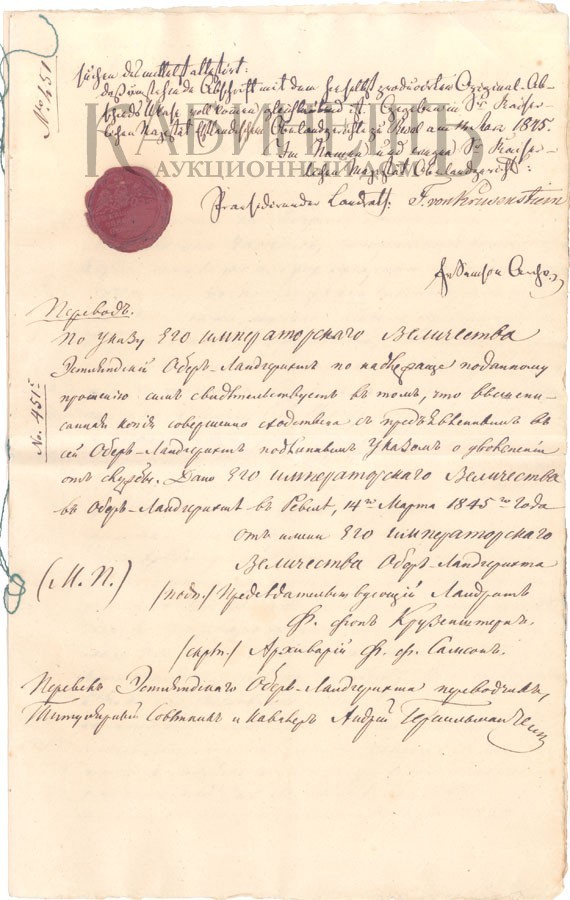 No. 451
suchen desmittelst attestirt:
daß umstehende Abschrift mit dem hieselbst producirten Original-Ab-
schieds Ukase vollkommen gleichlautend ist. Gegeben in Sr Kaiser-
lichen Majestät Ehstländischem Oberlandgerichte zu Reval am 14 März 1845.
Im Namen und wegen Sr Kaiser-
lichen Majestät Oberlandgericht:
Praesidirender Landrath: F. von Krusenstiern
КАБИНЕТЪ
АУКЦИОННЫЙ ДОМЪ
Переводъ.
По указу Его Императорскаго Величества
Эстляндскій Оберъ-Ландгерихтъ по надлежаще поданному
прошенію симъ свидѣтельствуетъ въ томъ, что вышепи-
санная копія совершенно сходственна съ предъявленнымъ въ
сей Оберъ-Ландгерихтъ подлиннымъ Указомъ о увольненіи
отъ службы. Дано Его Императорскаго Величества
въ Оберъ-Ландгерихтѣ въ Ревелѣ, 14го Марта 1845го Года
No. 451.
отъ имени Его Императорскаго
Величества Оберъ-Ландгерихта
(М. П.)
/подп./ Предсѣдательствующій Ландратъ
Ф. фонъ Крузенштернъ.
/скрѣп./ Архиварій Ф. ф. Самсонъ.
Перевелъ Эстляндскаго Оберъ-Ландгерихта переводчикъ,
Титулярный Совѣтникъ и Кавалеръ Андрей